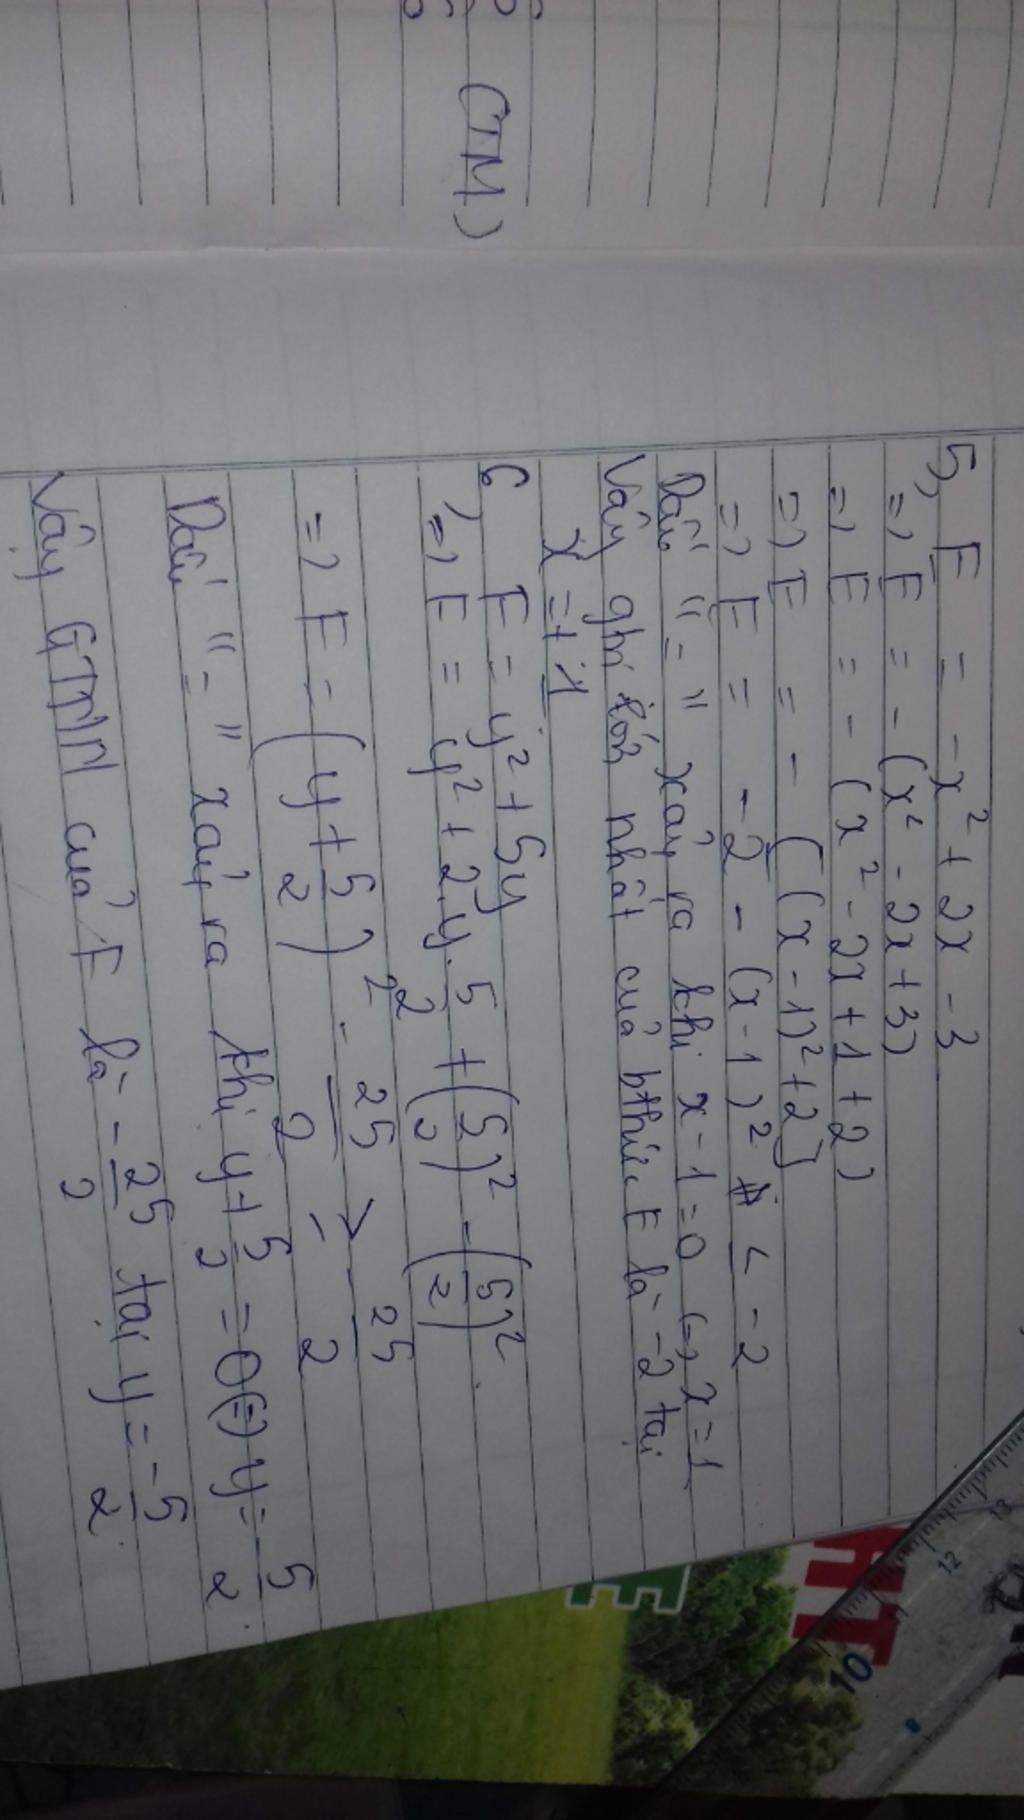 (TM)
5, E = -x² + 2x - 3
=) E = - (x² - 2x + 3)
=) E = - (x² - 2x + 1 + 2)
=) E = - [(x - 1)² + 2]
=) E = -2 - (x - 1)² ≤ -2
Dấu "=" xảy ra khi x - 1 = 0 (=) x = 1
Vậy giá trị lớn nhất của bthức E là -2 tại
x = 1
6, F = y² + 5y
=) F = y² + 2.y.5/2 + (5/2)² - (5/2)²
=) F = (y + 5/2)² - 25/2 ≥ - 25/2
Dấu "=" xảy ra khi y + 5/2 = 0 (=) y = - 5/2
Vậy GTNN của F là - 25/2 tại y = -5/2
13
12
10
8